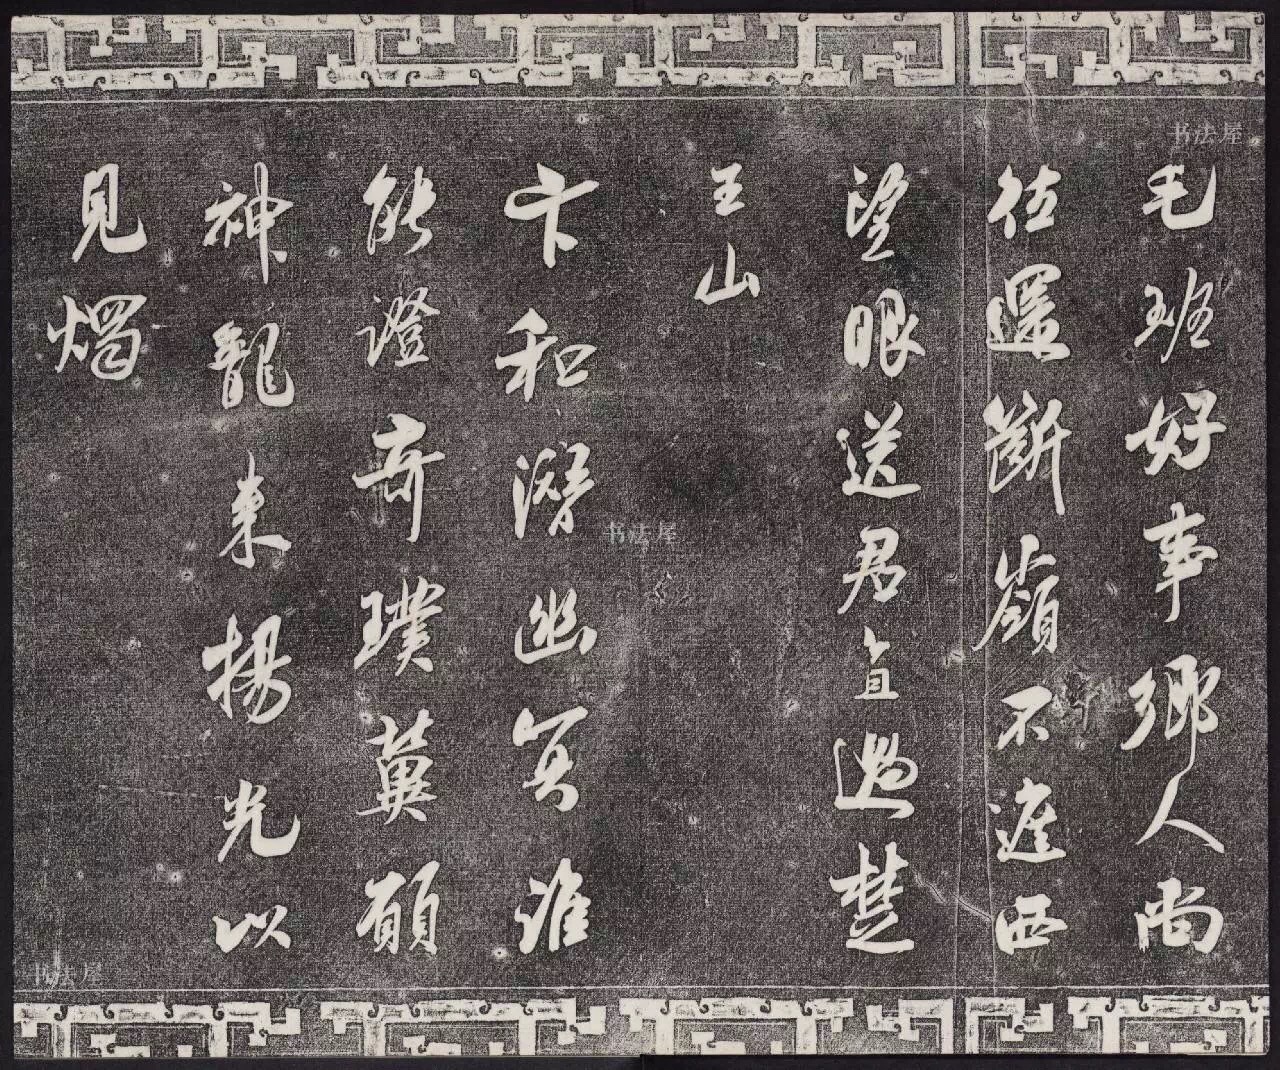 毛斑好事鄉人尚
往還斷嶺不遮西
望眼送君直過楚
王山
卞和潛幽冥誰
能證奇璞冀願
神龍來揚光以
見燭
书法屋
书法屋
书法屋